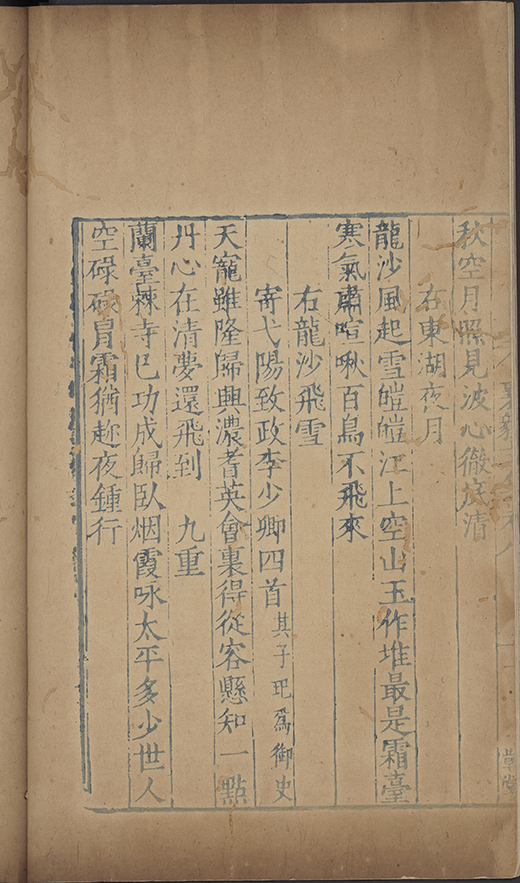 秋空月照見波心徹底清
右東湖夜月
龍沙風起雪皚皚江上空山玉作堆最是霜臺
寒氣肅喧啾百鳥不飛來
右龍沙飛雪
寄弋陽致政李少卿四首其子玘爲御史
天寵雖隆歸興濃耆英會裏得從容懸知一點
丹心在清夢還飛到 九重
蘭臺棘寺已功成歸臥烟霞咏太平多少世人
空碌碌冐霜猶趂夜鍾行